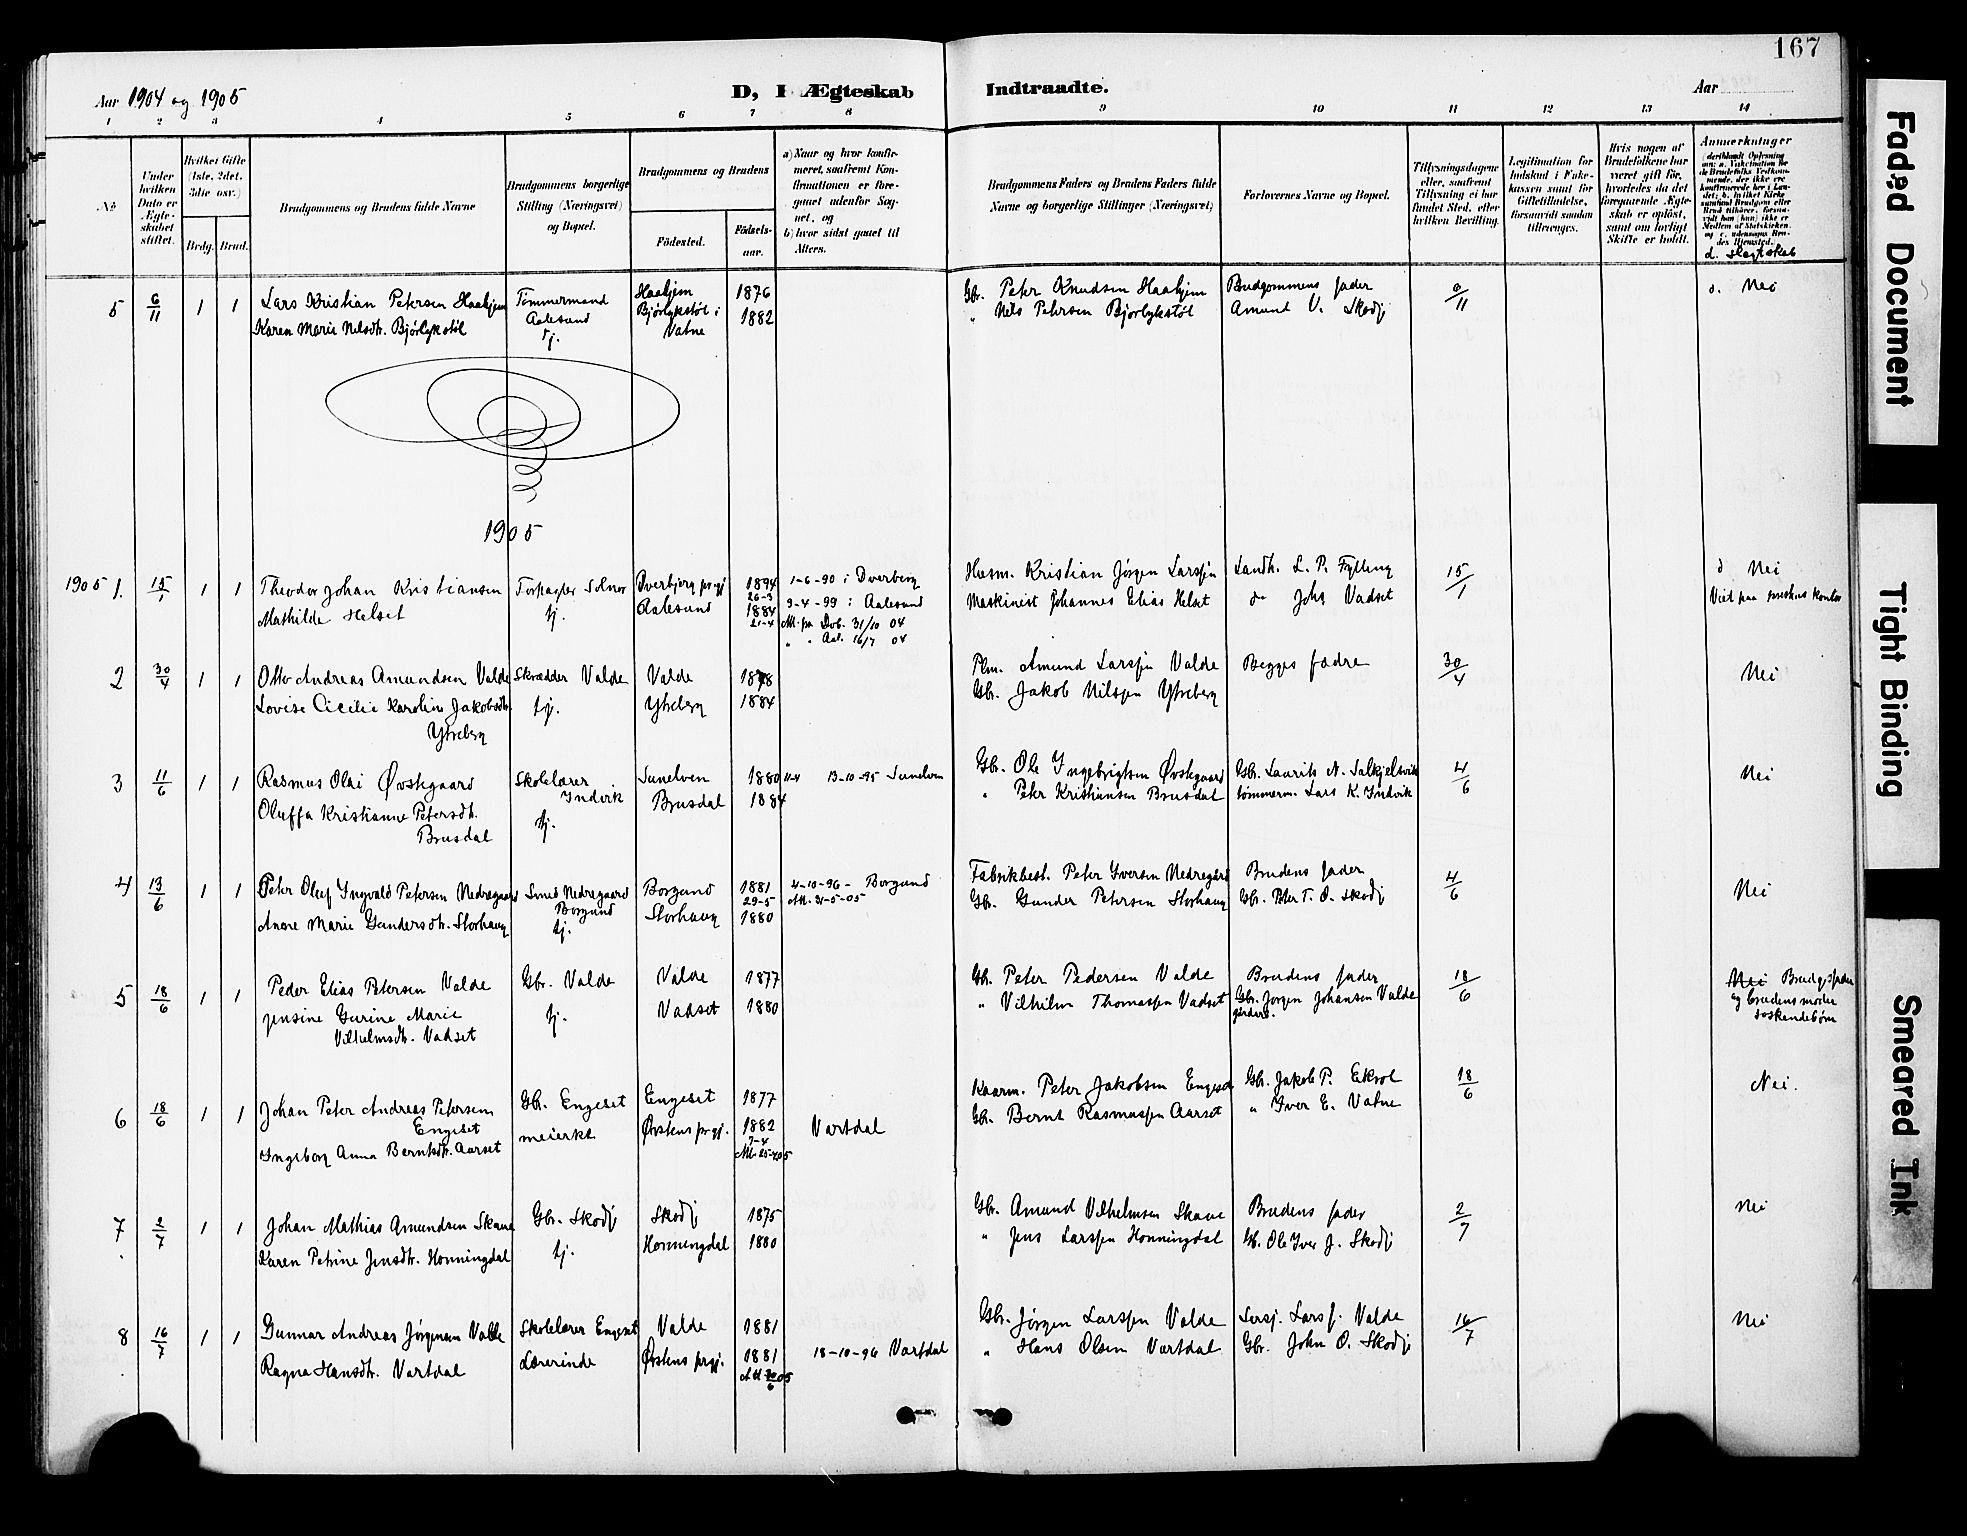 167
Aar 1904 og 1905
D, I Ægteskab Indtraadte.
Aar
1 2 3 4 5 6 7 8 9 10 11 12 13 14
No
Under hvilken Dato er Ægteskabet stiftet.
Hvilket Gifte (1ste, 2det, 3die osv.)
Brdg. Brud.
Brudgommens og Brudens fulde Navne
Brudgommens borgerlige Stilling (Næringsvei) og Bopæl.
Brudgommens og Brudens
Födested.
Födselsaar.
a) Naar og hvor konfirmeret, saafremt Konfirmationen er foregaaet udenfor Sognet, og
b) hvor sidst gaaet til Alters.
Brudgommens Faders og Brudens Faders fulde Navne og borgerlige Stillinger (Næringsvei)
Forlovernes Navne og Bopæl.
Tillysningsdagene eller, saafremt Tillysning ei har fundet Sted, efter hvilken Bevilling.
Legitimation for Indskud i Enkekassen samt for Giftetilladelse, forsaavidt saadan tiltrænges.
Hvis nogen af Brudefolkene har været gift før, hvorledes da det foregaaende Ægteskab er opløst, samt om lovligt Skifte er holdt.
Anmærkninger
d. Slegtskab
5 6/11 1 1 Lars Kristian Petersen Haahjem Tömmermand Haahjem 1876 Gbr. Peter Knudsen Haahjem Brudgommens fader 6/11 d. Nei
Karen Marie Nilsdtr. Bjørlykstøl Aalesund tj. Bjørlykstøl i Vatne 1882 " Nils Petersen Bjørlykstøl Amund V. Skodj
1905
1905 1. 15/1 1 1 Theodor Johan Kristiansen Forpagter Solnor Dverberg prgj 1894 26-3 1-6-90 i Dverberg Husm. Kristian Jörgen Larssen Landh. L. P. Fylling 15/1 d Nei
Mathilde Helset tj. Aalesund 1884 21-4 9-4-99 i Aalesund Maskinist Johannes Elias Helset do Johs Vadset Viet paa prestens kontor
Att. fra Dvb. 31/10 04
" " Aal. 16/7 04
2 30/4 1 1 Otto Andreas Amundsen Valde Skrædder Valde Valde 1878 Plm. Amund Larssen Valde Begges fædre 30/4 Nei
Lovise Cicilie Karoline Jakobsdtr. Ytreberg tj. Ytreberg 1884 Gbr. Jakob Nilssen Ytreberg
3 11/6 1 1 Rasmus Olai Øvstegaard Skolelærer Indvik Sunelven 1880 11-4 13-10-95 Sunelven Gbr. Ole Ingebrigtsen Øvstegaard Gbr. Laurits N. Solkjelsvik 4/6 Nei
Oluffa Kristianne Petersdtr. Brusdal tj. Brusdal 1884 " Peter Kristiansen Brusdal tömmerm. Lars K. Indvik
4 13/6 1 1 Peter Oluf Ingvald Petersen Nedregaard Smed Nedregaard Borgund Borgund 1881 29-5 4-10-96 - Borgund Fabrikbest. Peter Iversen Nedregård Brudens fader 4/6 Nei
Anne Marie Gundersdtr. Storhaug tj. Storhaug 1880 Att. 31-5-05 Gbr. Gunder Petersen Storhaug Gbr. Peter T. O. Skodj
5 18/6 1 1 Peder Elias Petersen Valde Gbr. Valde Valde 1877 Gbr. Peter Pedersen Valde Brudens fader 18/6 Nei Brudgs fader og brudens moder söskendebörn
Jensine Gurine Marie Vilhelmsdtr. Vadset tj. Vadset 1880 " Vilhelm Thomassen Vadset Gbr. Jörgen Johansen Valde
6 18/6 1 1 Johan Peter Andreas Petersen Engeset Gbr. Engeset Engeset 1877 Kaarm. Peter Jakobsen Engeset Gbr. Jakob P. Ekrol 18/6 Nei.
Ingeborg Anna Berntsdtr. Aarset meierke Ørstens prgj. 1882 7-4 Att. 25-4 05 Vartdal Gbr. Bernt Rasmussen Aarset " Iver E. Vatne
7 2/7 1 1 Johan Mathias Amundsen Skaue Gbr. Skodj Skodj 1875 Gbr. Amund Vilhelmsen Skaue Brudens fader 2/7 Nei
Karen Petrine Jensdtr. Honningdal tj. Honningdal 1880 " Jens Larssen Honningdal Gb. Ole Iver J. Skodj
8 16/7 1 1 Gunnar Andreas Jörgensen Valde Skolelærer Engeset Valde 1881 Gbr. Jörgen Larssen Valde Sersj. Lars J. Valde 16/7 Nei
Ragna Hansdtr. Vartdal Lærerinde Ørstens prgj. 1881 Att 30/6 05 18-10-96 Vartdal " Hans Olsen Vartdal Gbr. John O. Skodj
Faded Document
Tight Binding
Smeared Ink